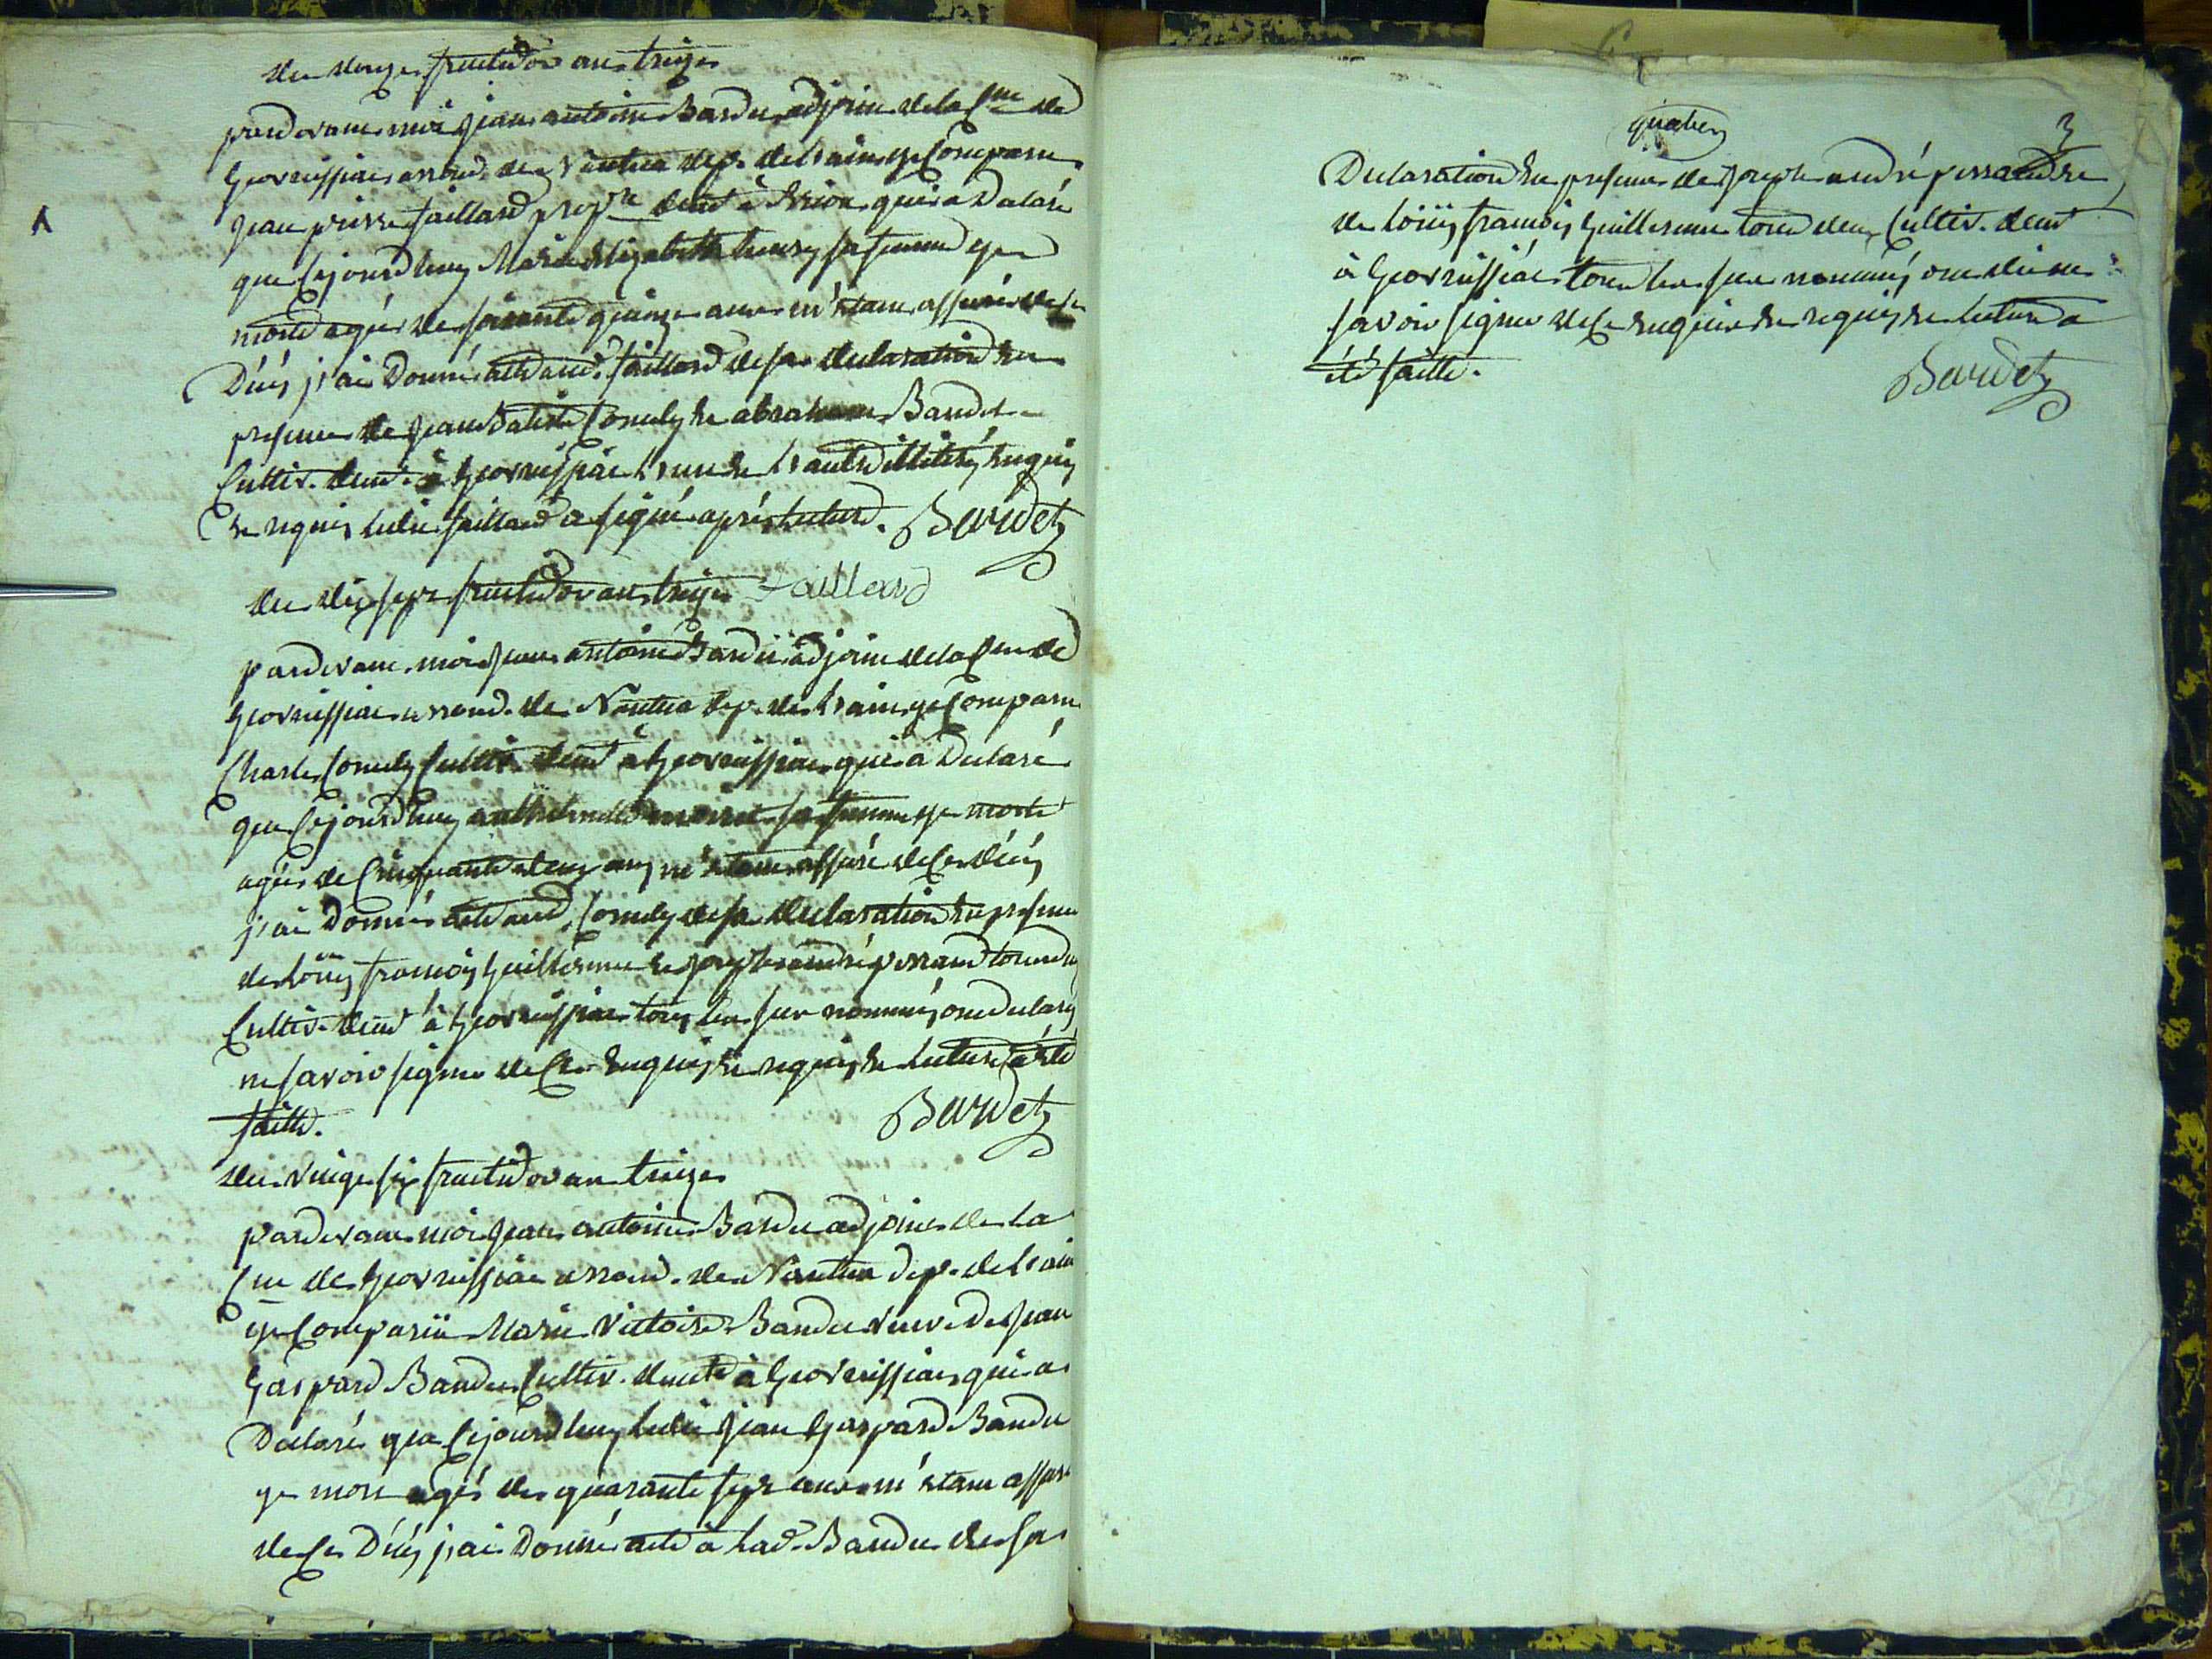 du douze fructidor an treize
pardevant moi jean antoine Bardet adjoint de la Cne de
Geovreissiat arrond. de Nantua dep. de l'ain est Comparu
jean pierre faillard propre demt à Brion qui a Declaré
que Cejourd'huy Marie Elizabeth sa femme est
morte agée de soixante quinze ans m'étant assuré de Ce
Décés j'ai Donné acte aud. faillard de sa declaration En
presence de jean Batiste Comely Et abraham Baudet
Cultiv. demt à Geovreissiat l'un Et l'autre illiterés Enquis
Et requis ledit faillard a signé aprés lecture. Bardet
du dix sept fructidor an treize faillard
pardevant moi jean antoine Bardet adjoint de la Cne de
Geovreissiat arrond. de Nantua dep. de l'ain est Comparu
Charles Comely Cultiv. demt à Geovreissiat qui a Declaré
que Cejourd'huy sa femme est morte
agée de Cinquante deux ans m'étant assuré de Ce décés
j'ai Donné acte aud. Comely de sa declaration En presence
de Loüis françois Guillermet Et joseph andré perrand tous deux
Cultiv. demt à Geovreissiat tous les sus nommés ont declaré
ne savoir signer de Ce Enquis Et requis Et lecture a été
faitte. Bardet
du vingt six fructidor an treize
pardevant moi jean antoine Bardet adjoint de la
Cne de Geovreissiat arrond. de Nantua dep. de l'ain
est Comparüe Marie Victoire Baudet veuve de jean
Gaspard Baudet Cultiv. demte à Geovreissiat qui a
Declaré que Cejourd'huy ledit jean Gaspard Baudet
est mort agé de quarante sept ans m'étant assuré
de Ce Décés j'ai Donné acte à lad. Baudet de sa
3
Declaration En presence de joseph andré perrand Et
de Loüis françois Guillermet tous deux Cultiv. demt
à Geovreissiat tous les sus nommés ont dit ne
savoir signer de Ce Enquis Et requis Et lecture a
été faitte. Bardet